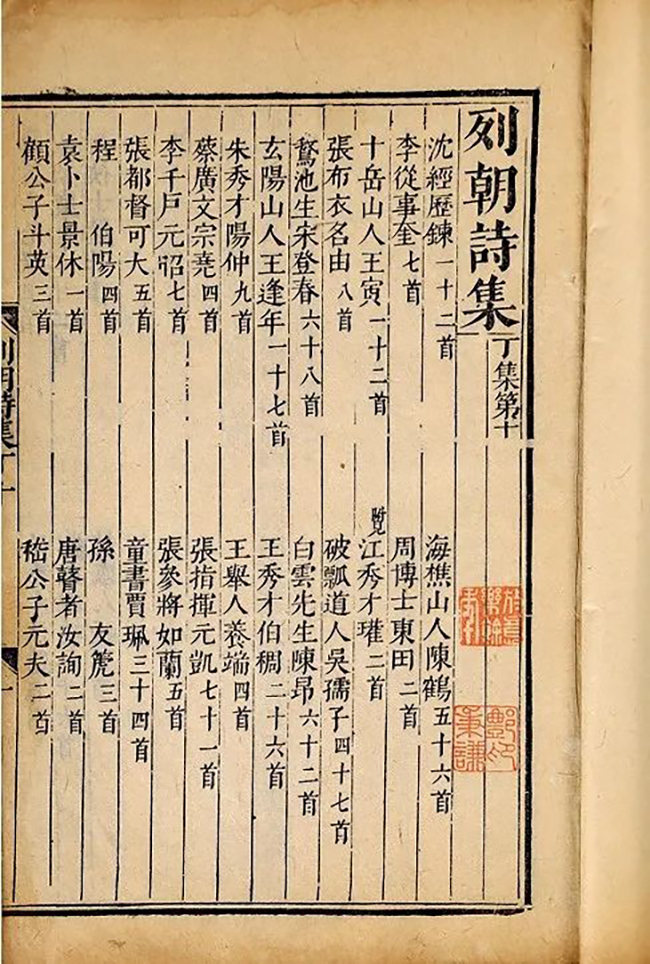 列朝詩集丁集第十
沈經歷鍊一十二首 海樵山人陳鶴五十六首
李從事奎七首 周博士東田二首
十岳山人王寅一十二首 附見江秀才瓘二首
張布衣名由八首 破瓢道人吳孺子四十七首
鵞池生宋登春六十八首 白雲先生陳昂六十二首
玄陽山人王逢年一十七首 王秀才伯稠二十六首
朱秀才陽仲九首 王舉人養端四首
蔡廣文宗堯四首 張指揮元凱七十一首
李千戶元昭七首 張參將如蘭五首
張都督可大五首 童書賈珮三十四首
程 伯陽四首 孫 友箎三首
袁卜士景休一首 唐瞽者汝詢二首
顧公子斗英三首 嵇公子元夫二首